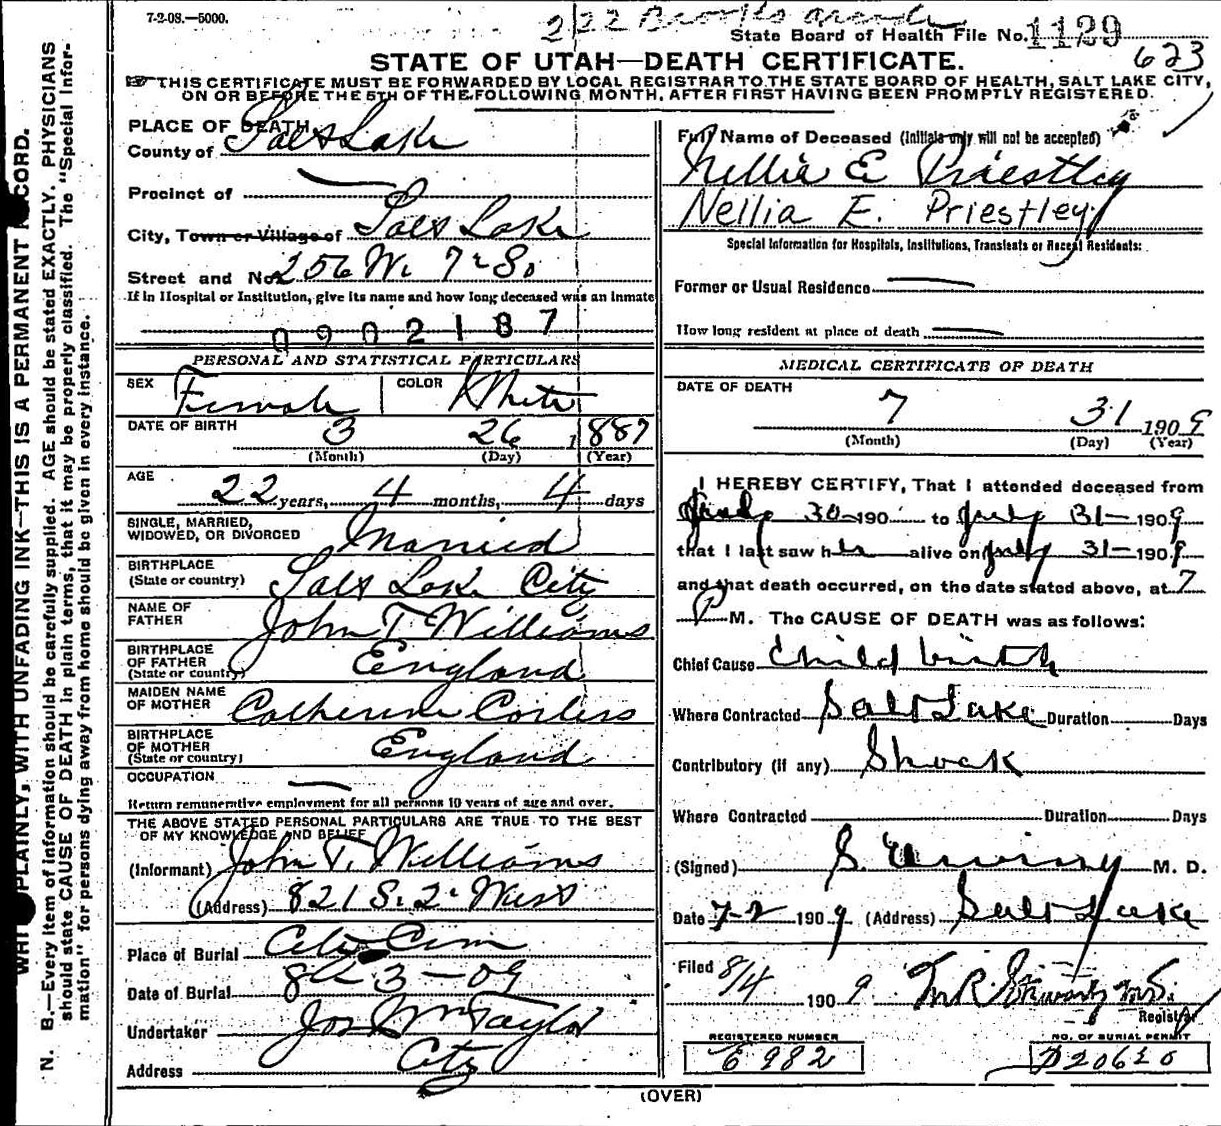 7-2-08.—5000.
222 Brooks Arcade
State Board of Health File No. 1129
623
STATE OF UTAH—DEATH CERTIFICATE.
☞ THIS CERTIFICATE MUST BE FORWARDED BY LOCAL REGISTRAR TO THE STATE BOARD OF HEALTH, SALT LAKE CITY,
ON OR BEFORE THE 5TH OF THE FOLLOWING MONTH, AFTER FIRST HAVING BEEN PROMPTLY REGISTERED.
WRITE PLAINLY, WITH UNFADING INK—THIS IS A PERMANENT RECORD.
N. B.—Every item of information should be carefully supplied. AGE should be stated EXACTLY. PHYSICIANS
should state CAUSE OF DEATH in plain terms, that it may be properly classified. The "Special Infor-
mation" for persons dying away from home should be given in every instance.
PLACE OF DEATH
County of Salt Lake
Precinct of
City, Town or Village of Salt Lake
Street and No. 256 W. 7th So
If in Hospital or Institution, give its name and how long deceased was an inmate
0902187
PERSONAL AND STATISTICAL PARTICULARS
SEX Female COLOR White
DATE OF BIRTH 3 26 1887
(Month) (Day) (Year)
AGE 22 years, 4 months, 4 days
SINGLE, MARRIED,
WIDOWED, OR DIVORCED Married
BIRTHPLACE
(State or country) Salt Lake City
NAME OF
FATHER John T Williams
BIRTHPLACE
OF FATHER
(State or country) England
MAIDEN NAME
OF MOTHER Catherine Corless
BIRTHPLACE
OF MOTHER
(State or country) England
OCCUPATION
Return remunerative employment for all persons 10 years of age and over.
THE ABOVE STATED PERSONAL PARTICULARS ARE TRUE TO THE BEST
OF MY KNOWLEDGE AND BELIEF
(Informant) John T. Williams
(Address) 821 S. 2nd West
Place of Burial City Cem
Date of Burial 8 3-09
Undertaker Jos Wm Taylor
Address City
Full Name of Deceased (Initials only will not be accepted)
Nellia E Priestley
Nellia E. Priestley
Special Information for Hospitals, Institutions, Transients or Recent Residents:
Former or Usual Residence
How long resident at place of death
MEDICAL CERTIFICATE OF DEATH
DATE OF DEATH
7 31 1909
(Month) (Day) (Year)
I HEREBY CERTIFY, That I attended deceased from
July 30 190 to July 31 1909
that I last saw her alive on July 31 1909
and that death occurred, on the date stated above, at 7
P M. The CAUSE OF DEATH was as follows:
Chief Cause Child birth
Where Contracted Salt Lake Duration Days
Contributory (if any) Shock
Where Contracted Duration Days
(Signed) S. Ewing M. D.
Date 7-2 1909 (Address) Salt Lake
Filed 8/4 1909 M R Stewart M.D.
Registrar
REGISTERED NUMBER
E 982
NO. OF BURIAL PERMIT
D20620
(OVER)